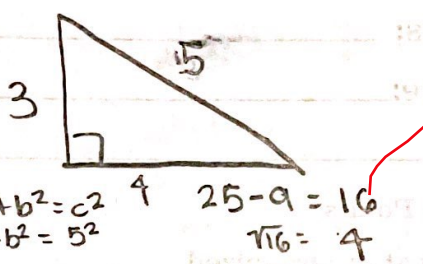 5
3
4
+b² = c²
b² = 5²
25 - 9 = 16
√16 = 4